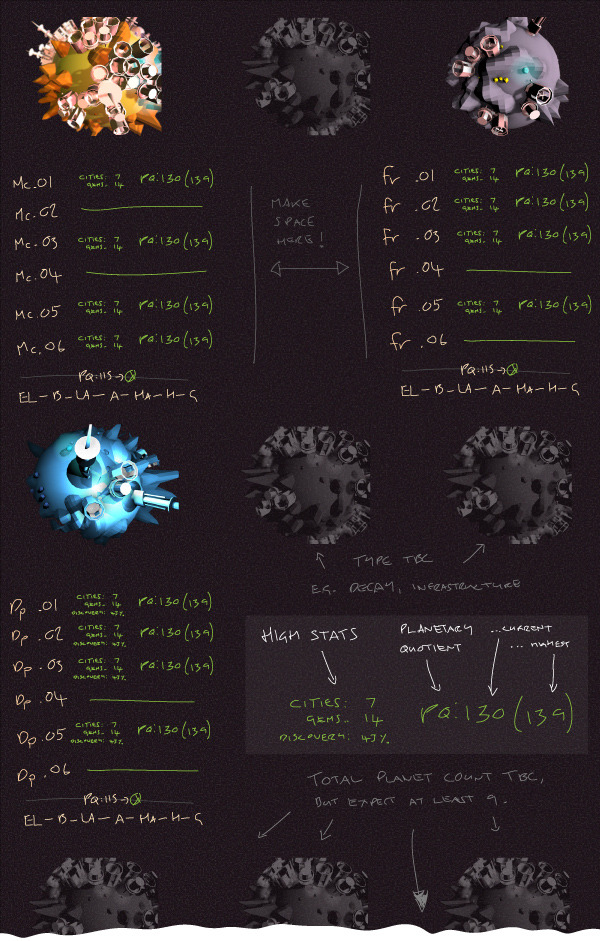 Mc.01 CITIES: 7 PQ:130(139)
GEMS- 14
Mc.02
Mc.03 CITIES: 7 PQ:130(139)
GEMS- 14
Mc.04
Mc.05 CITIES: 7 PQ:130(139)
GEMS- 14
Mc.06 CITIES: 7 PQ:130(139)
GEMS- 14
PQ:115→
EL-B-LA-A-HA-H-G
MAKE
SPACE
HERE!
Fr .01 CITIES: 7 PQ:130(139)
GEMS- 14
Fr .02 CITIES: 7 PQ:130(139)
GEMS- 14
Fr .03 CITIES: 7 PQ:130(139)
GEMS- 14
Fr .04
Fr .05 CITIES: 7 PQ:130(139)
GEMS- 14
Fr .06
PQ:115→
EL-B-LA-A-HA-H-G
TYPE TBC
E.G. DECAY, INFRASTRUCTURE
Dp .01 CITIES: 7 PQ:130(139)
GEMS- 14
DISCOVERY: 43%
Dp .02 CITIES: 7 PQ:130(139)
GEMS- 14
DISCOVERY: 43%
Dp .03 CITIES: 7 PQ:130(139)
GEMS- 14
DISCOVERY: 43%
Dp .04
Dp .05 CITIES: 7 PQ:130(139)
GEMS- 14
DISCOVERY: 43%
Dp .06
PQ:115→
EL-B-LA-A-HA-H-G
HIGH STATS
PLANETARY
QUOTIENT
...CURRENT
... HIGHEST
CITIES: 7
GEMS- 14
DISCOVERY: 43%
PQ:130(139)
TOTAL PLANET COUNT TBC,
BUT EXPECT AT LEAST 9.